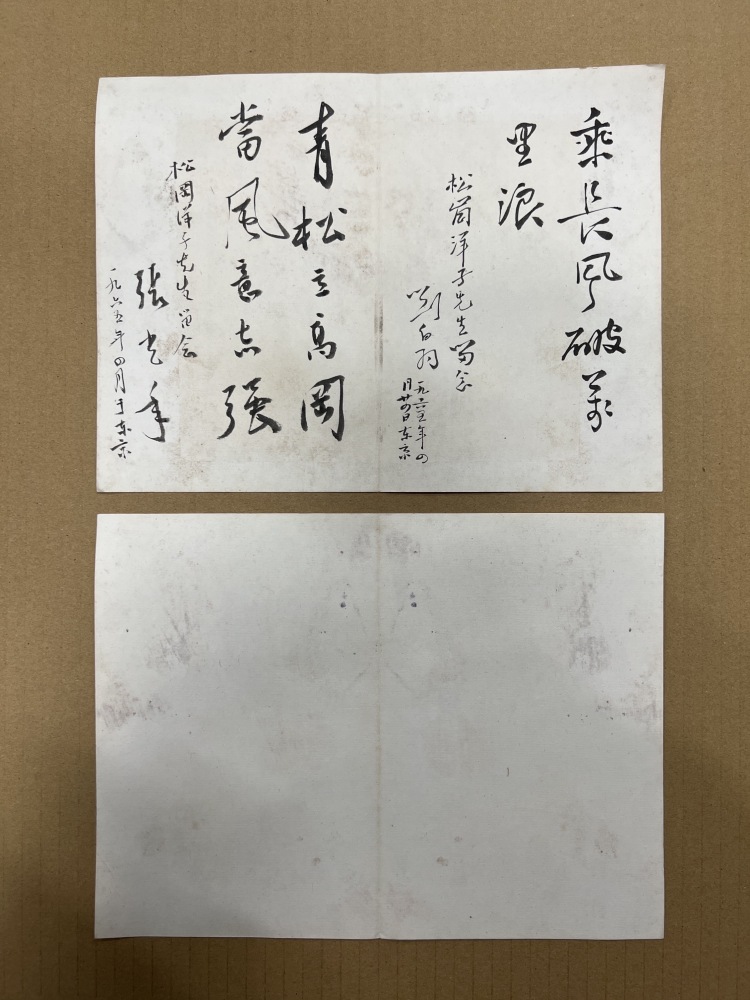 乘長风破萬
里浪
松岗洋子先生留念
刘白羽
一九六五年四
月廿四日东京
青松立高岡
當风意志張
松岡洋子先生留念
张光年
一九六五年四月于东京